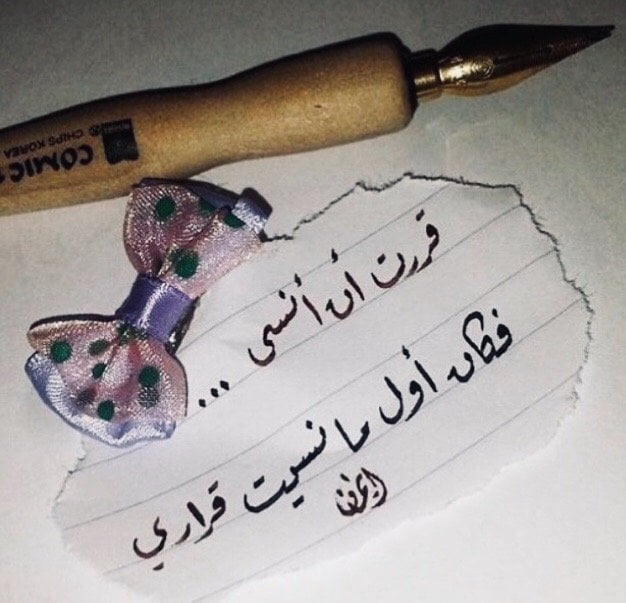 COMIC
CHIPS KOREA
قررت أن أنسى ...
فكان أول ما نسيت قراري